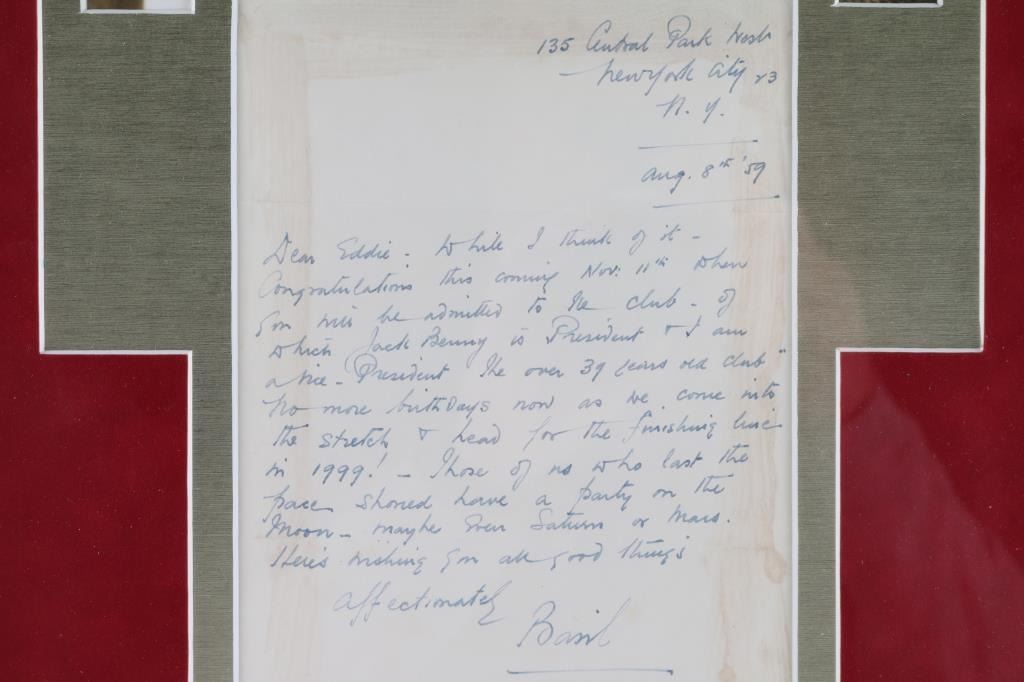 135 Central Park West
New York City 23
N. Y.
Aug. 8th '59
Dear Eddie - While I think of it -
Congratulations this coming Nov: 11th when
you will be admitted to the club - of
which Jack Benny is President & I am
a Vice-President The over 39 years old club"
No more birthdays now as we come into
the stretch & head for the finishing line
in 1999! - Those of us who last the
pace should have a party on the
Moon - maybe even Saturn or Mars.
Here's wishing you all good things
affectionately
Basil